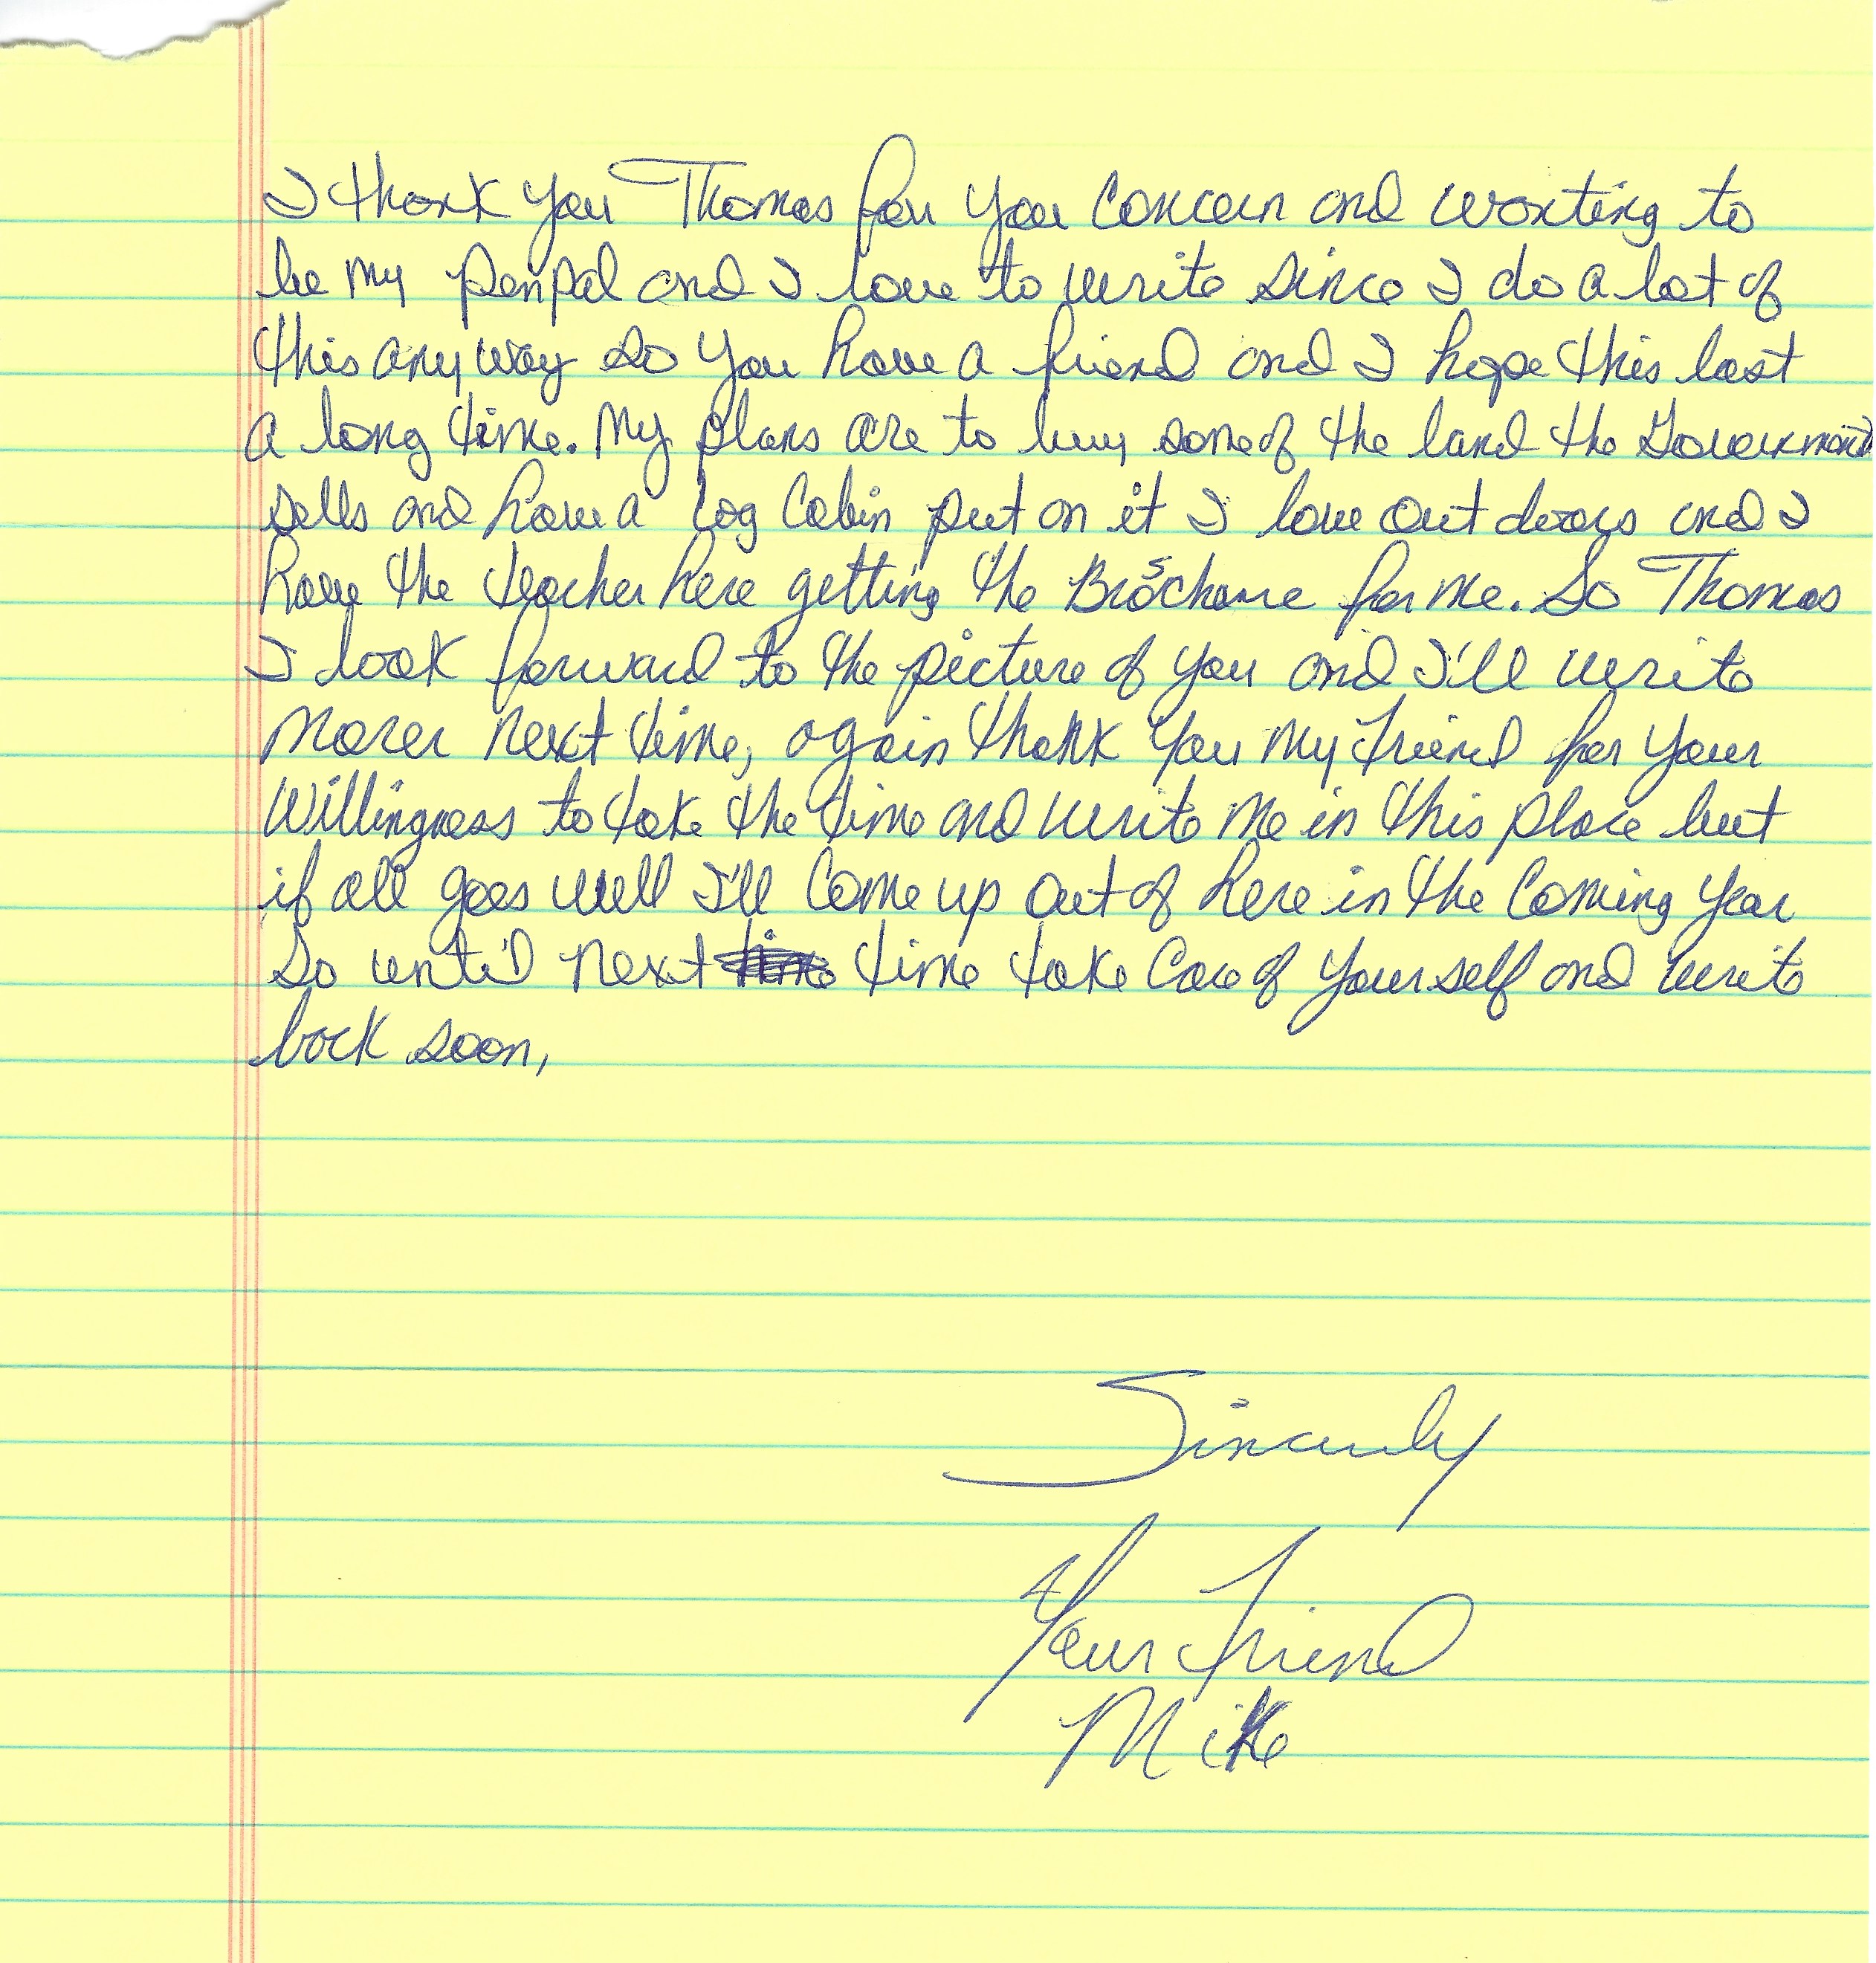 I thank you Thomas for you concern and wanting to
be my penpal and I love to write since I do a lot of
this any way so you have a friend and I hope this last
a long time. My plans are to buy some of the land the Government
sells and have a log cabin put on it I love out doors and I
have the teacher here getting the for me. So Thomas
I look forward to the picture of you and I'll write
more next time, again thank you my friend for your
willingness to take the time and write me in this place but
if all goes well I'll come up out of here in the coming year
So until next time take care of yourself and write
back soon,
Sincerly
Your Friend
Mike